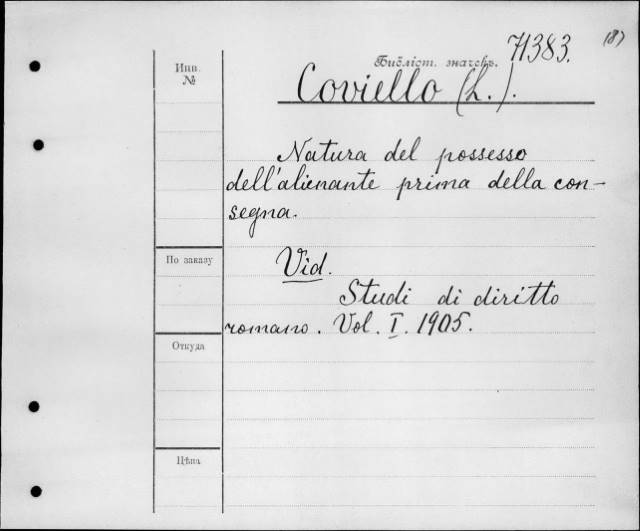 (8)
71383.
Инв.
№
Библіот. значекъ.
Coviello (L.).
Natura del possesso
dell'alienante prima della con-
segna.
По заказу
Vid.
Studi di diritto
romano. Vol. I. 1905.
Откуда
Цѣна